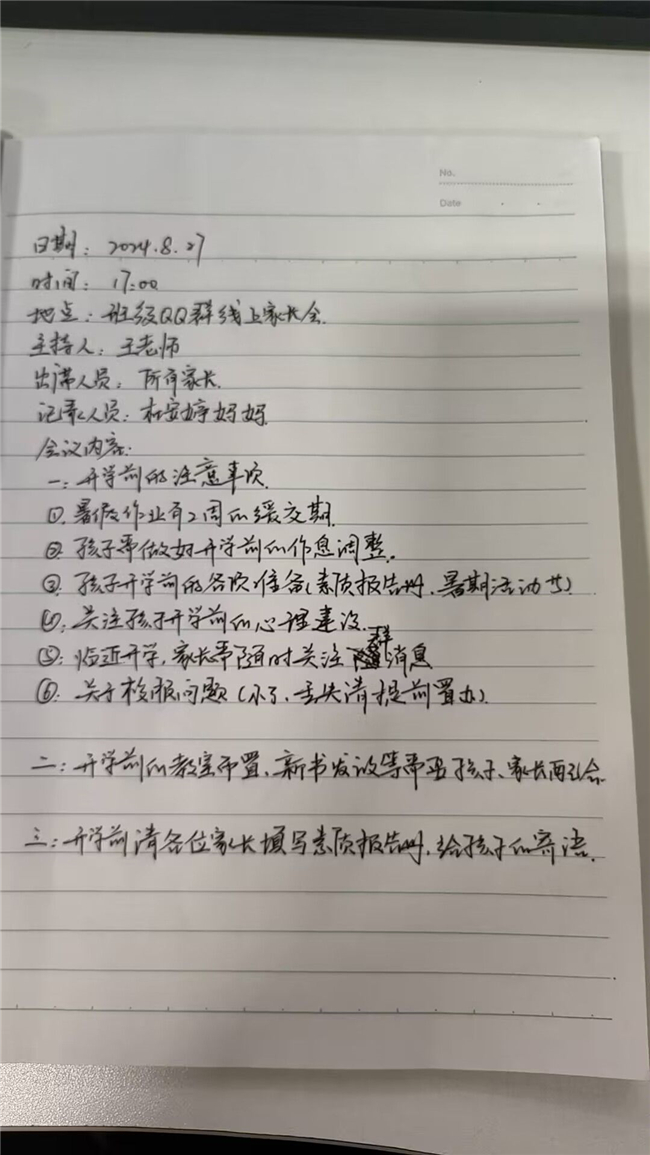 No.
Date
日期：2024.8.27
时间：17:00
地点：班级QQ群线上家长会.
主持人：王老师
出席人员：所有家长.
记录人员：杜安婷妈妈.
会议内容：
一：开学前的注意事项.
①.暑假作业有2周的缓交期.
②.孩子需做好开学前的作息调整。
③.孩子开学前的各项准备(素质报告册、暑期活动书)
④.关注孩子开学前的心理建设.
⑤：临近开学，家长需随时关注群消息
⑥.关于校服问题(小了、丢失请提前置办).
二：开学前的教室布置、新书发放等需要孩子、家长配合.
三：开学前请各位家长填写素质报告册，给孩子的寄语.